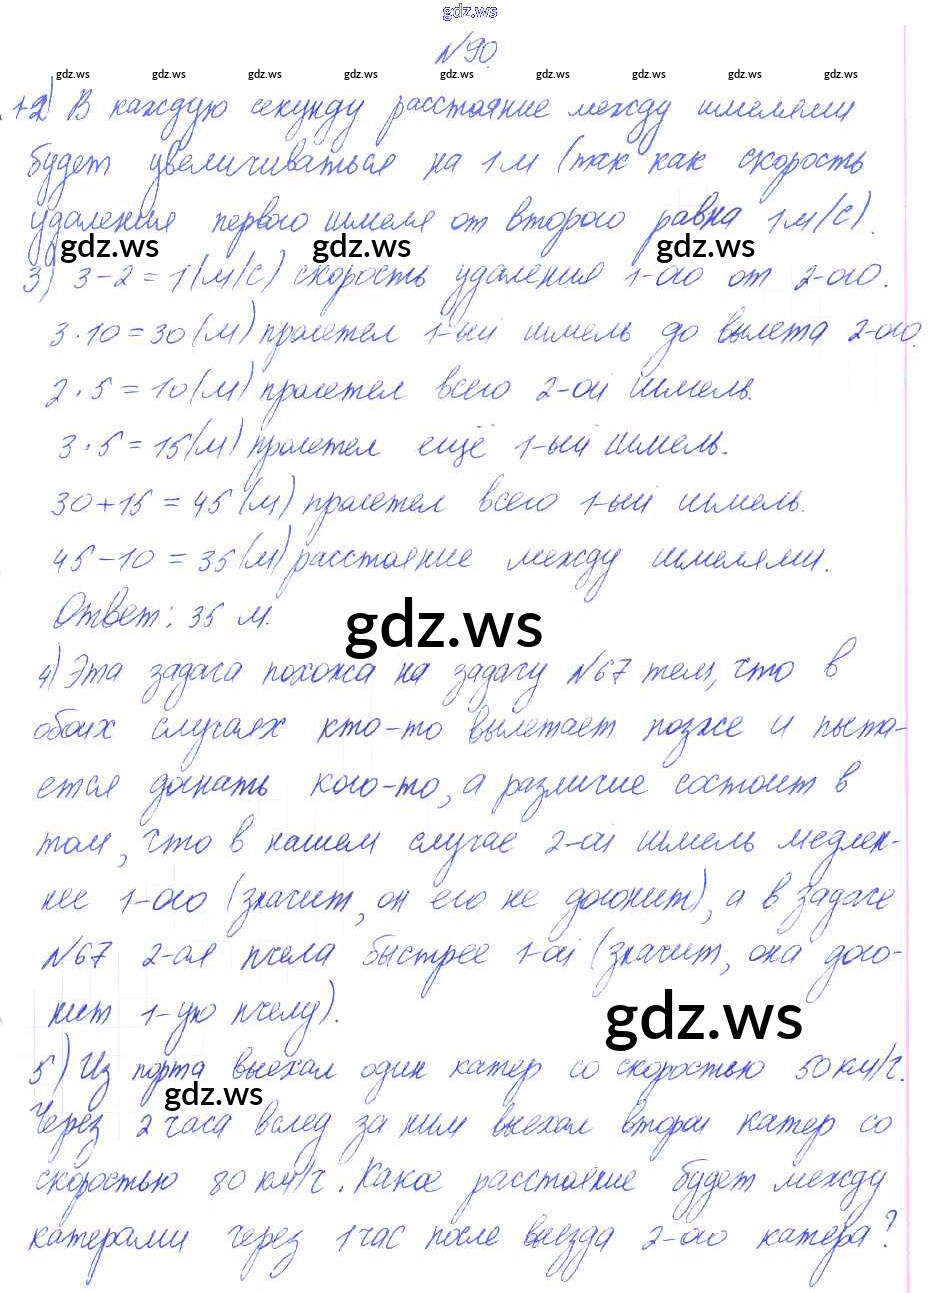 gdz.ws
№90.
gdz.ws gdz.ws gdz.ws gdz.ws gdz.ws gdz.ws gdz.ws gdz.ws gdz.ws
1-2) В каждую секунду расстояние между шмелями
будет увеличиваться на 1 м (так как скорость
удаления первого шмеля от второго равна 1 м/с).
gdz.ws gdz.ws gdz.ws
3) 3-2=1 (м/с) скорость удаления 1-ого от 2-ого.
3·10=30 (м) пролетел 1-ый шмель до вылета 2-ого.
2·5=10 (м) пролетел всего 2-ой шмель.
3·5=15 (м) пролетел ещё 1-ый шмель.
30+15=45 (м) пролетел всего 1-ый шмель.
45-10=35 (м) расстояние между шмелями.
Ответ: 35 м.
gdz.ws
4) Эта задача похожа на задачу №67 тем, что в
обоих случаях кто-то вылетает позже и пыта-
ется догнать кого-то, а различие состоит в
том, что в нашем случае 2-ой шмель медлен-
нее 1-ого (значит, он его не догонит), а в задаче
№67 2-ая пчела быстрее 1-ой (значит, она дого-
нит 1-ую пчелу).
gdz.ws
5) Из порта выехал один катер со скоростью 50 км/ч.
gdz.ws
Через 2 часа вслед за ним выехал второй катер со
скоростью 80 км/ч. Какое расстояние будет между
катерами через 1 час после выезда 2-ого катера?